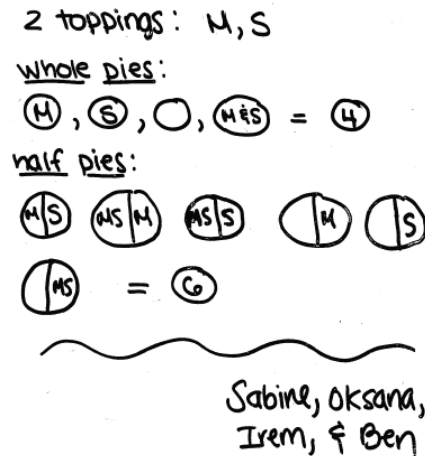 2 toppings: M, S
whole pies:
M, S, , M&S = 4
half pies:
M|S MS|M MS|S |M |S
|MS = 6
Sabine, Oksana,
Irem, & Ben